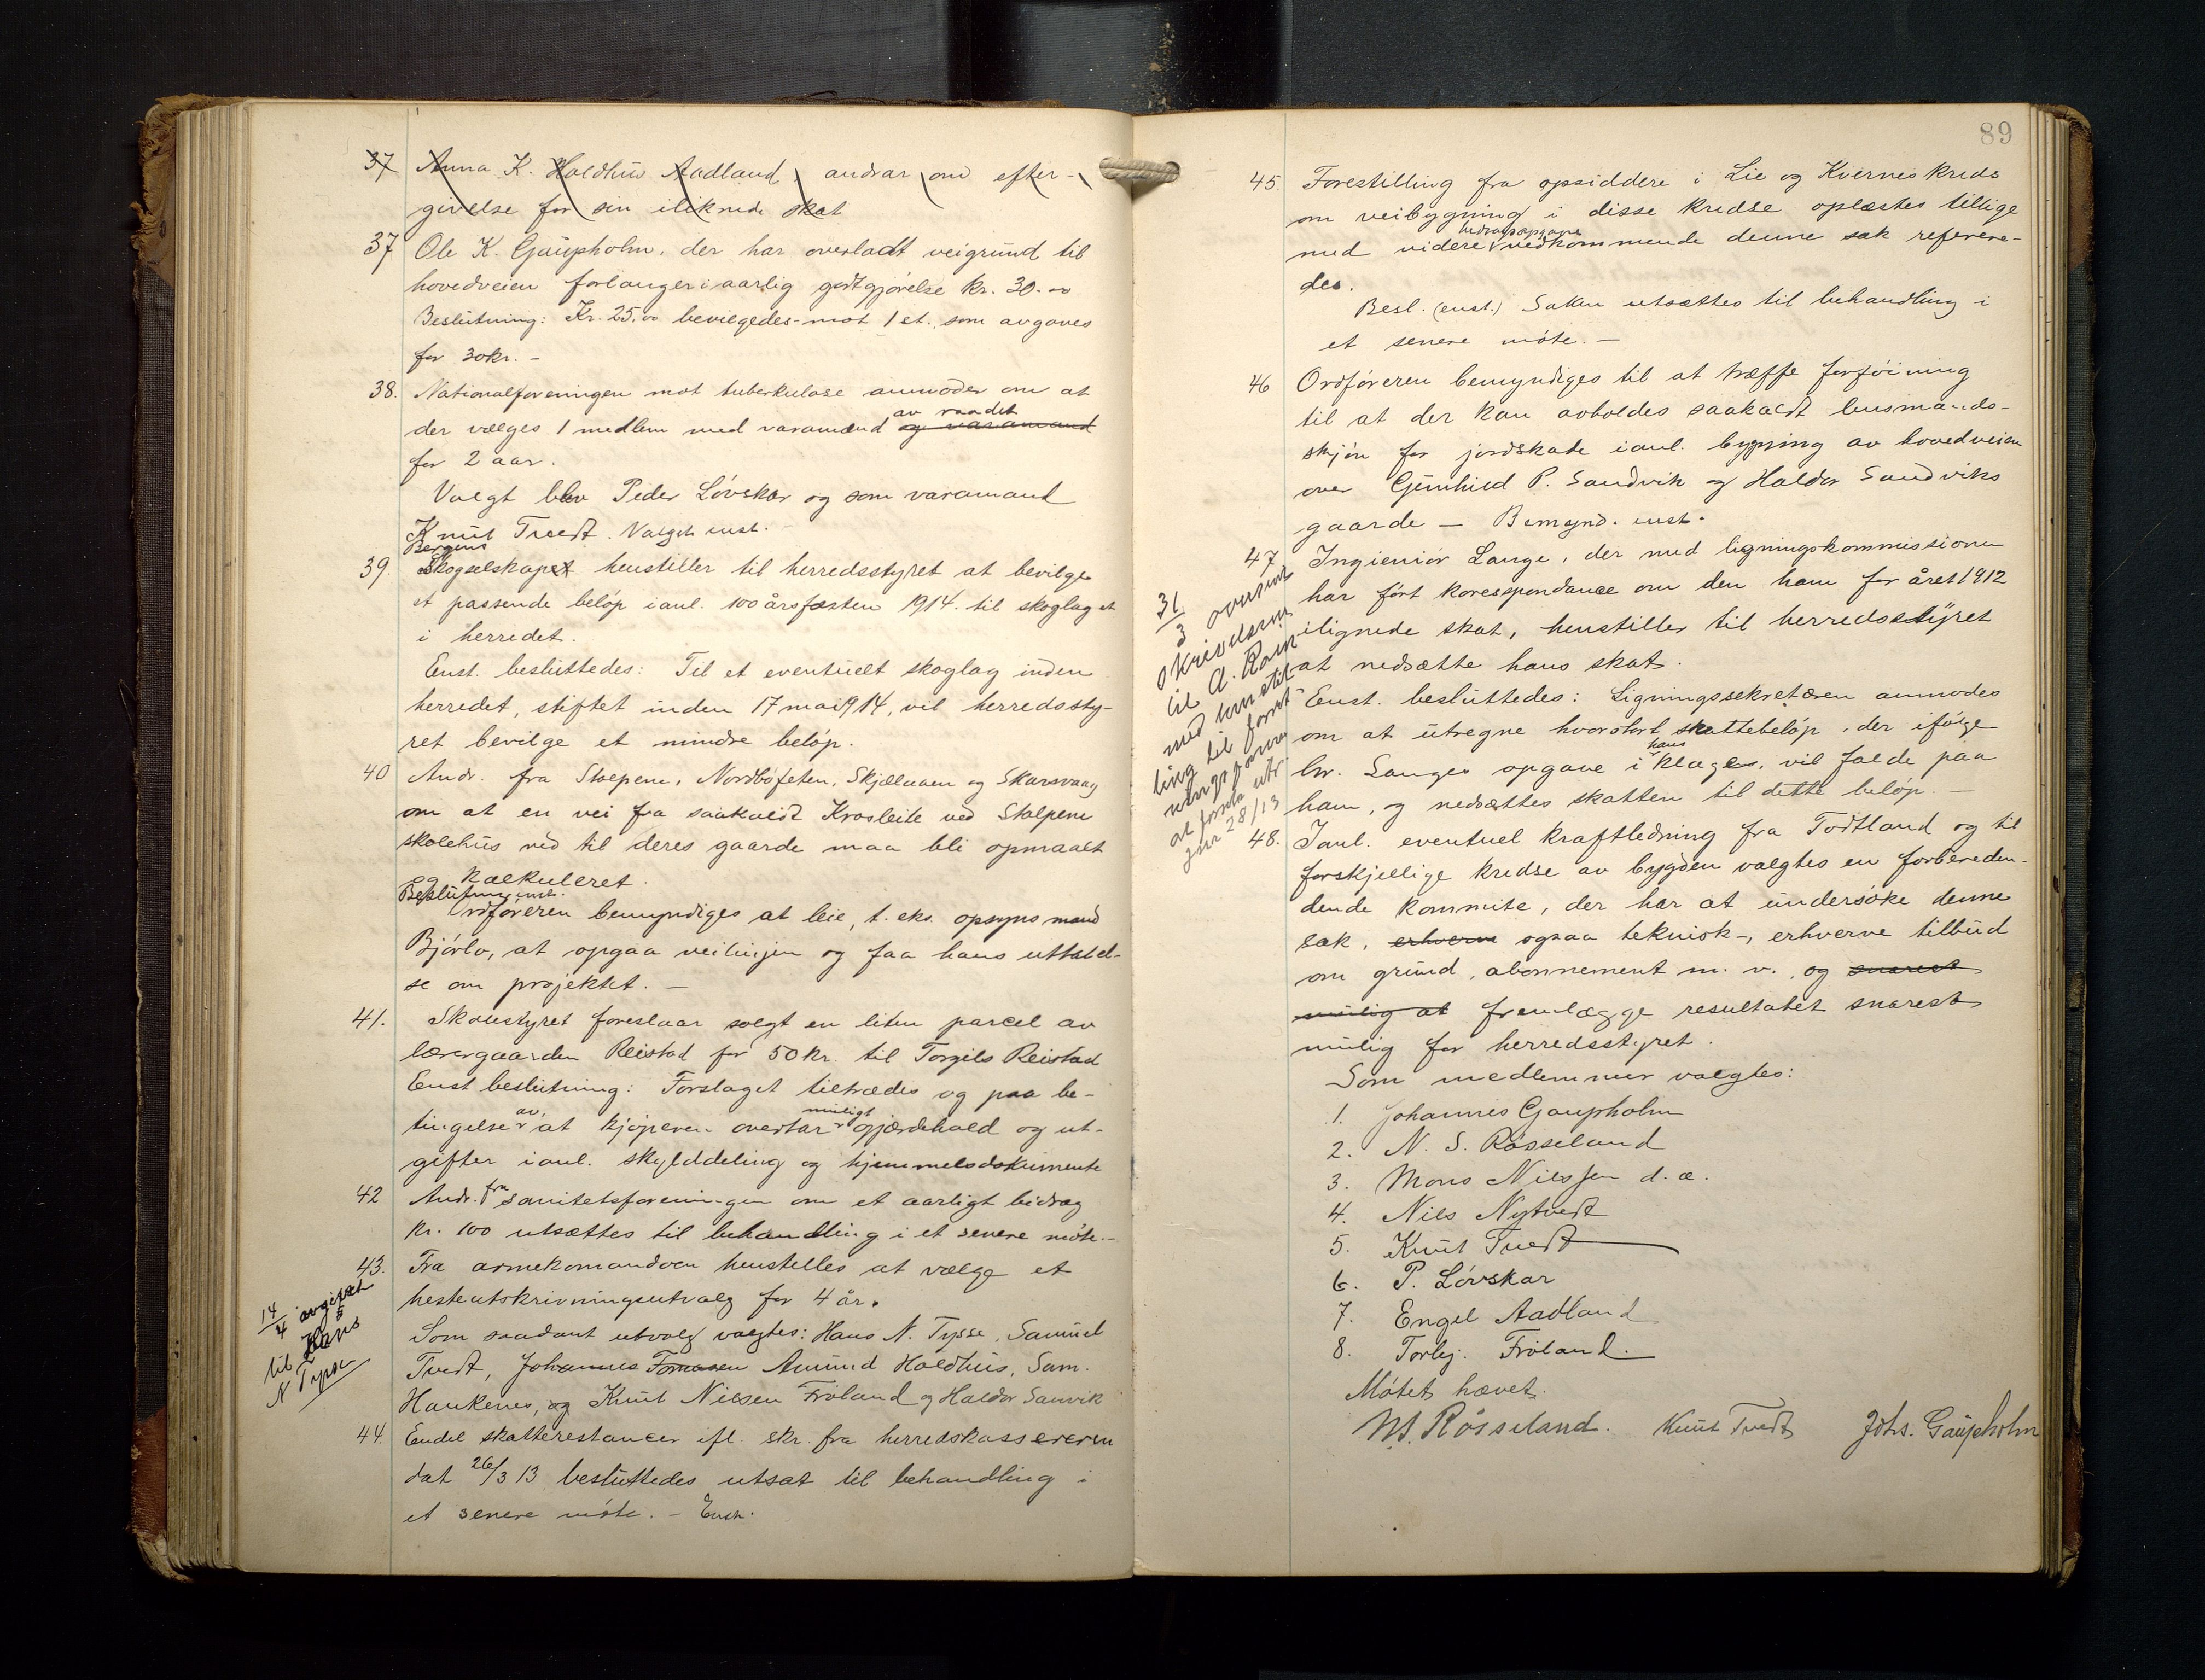 37 Anna K. Holdhus Aadland, andrar om efter-
givelse for sin iliknede skat
37 Ole K. Gaupholm, der har overladt veigrund til
hovedveien forlanger i aarlig godtgjørelse kr. 30.00
Beslutning: Kr. 25.00 bevilgedes mot 1 st. som avgaves
for 30 kr. -
38. Nationalforeningen mot tuberkulose anmoder om at
av raadet
der vælges 1 medlem med varamænd og varamand
for 2 aar.
Valgt blev Peder Løvskar og som varamand
Knut Tvedt. Valget enst.
Bergens
39. Skogselskapet henstiller til herredsstyret at bevilge
et passende beløp i anl. 100 årsfæsten 1914. til skoglaget
i herredet.
Enst. besluttedes: Til et eventuelt skoglag inden
herredet, stiftet inden 17 mai 1914, vil herredssty-
ret bevilge et mindre beløp.
40 Andr. fra Stolpene, Nordbøfeten, Skjælaaen og Skarsvaag
om at en vei fra saakaldt Krosleite ved Stolpene
skolehus ned til deres gaarde maa bli opmaalt
og kalkuleret.
Beslutning enst.
Ordføreren bemyndiges at leie, t. eks. opsynsmand
Bjørlo, at opgaa veilinjen og faa hans uttalel-
se om projektet. -
41. Skolestyret foreslaar solgt en liten parcel av
lærergaarden Reistad for 50 kr. til Torgils Reistad
Enst beslutning: Forslaget tiltrædes og paa be-
av muligt
tingelse at kjøperen overtar gjærdehold og ut-
gifter i anl. skylddeling og hjemmelsdokumente
42 Andr. fra sanitetsforeningen om et aarligt bidrag
kr. 100 utsættes til behandling i et senere møte.-
43. Fra armekomandoen henstilles at vælge et
hesteutskrivningsutvalg for 4 år.
14/4 avgivet
til Hans
N Tysse
Som saadant utvalg valgtes: Hans N. Tysse, Samuel
Tvedt, Johannes Tomasen Amund Holdhus, Sam.
Haukenes, og Knut Nilsen Frøland og Haldor Sanvik
44. Endel skatterestancer ifl. skr. fra herredskassereren
dat 26/3 13 besluttedes utsat til behandling i
et senere møte. - Enst.
89
45. Forestilling fra opsiddere i Lie og Kvernes kreds
om veibygning i disse kredse oplæstes tillige
bidragsopgave
med videre vedkommende denne sak refere-
des.
Besl. (enst.) Saken utsættes til behandling i
et senere møte. -
46 Ordføreren bemyndiges til at træffe forføining
til at der kan avholdes saakaldt lensmands-
skjøn for jordskade i anl. bygging av hovedveien
over Gunhild P. Sandvik og Haldor Sandviks
gaarde - Bemynd. enst.
47 Ingieniør Lange, der med ligningskommissionen
har ført korespondance om den ham for året 1912
ilignede skat, henstiller til herredsstyret
at nedsætte hans skat.
31/3 oversendt
skrivelsen
til A. Røen
med henstil-
ling til
at foreta utr.
jnr 28/13
Enst. besluttedes: Ligningssekretæren anmodes
om at utregne hvor stort skattebeløp, der ifølge
hans
hr. Langes opgave i klage, vil falde paa
ham, og nedsættes skatten til dette beløp. -
48. I anl. eventuel kraftledning fra Todtland og til
forskjellige kredse av bygden valgtes en forbereden-
dende kommite, der har at undersøke denne
sak, erhverve ogsaa teknisk-, erhverve tilbud
om grund, abonnement m. v., og snarest
mulig at fremlægge resultatet snarest
mulig for herredsstyret.
Som medlemmer valgtes:
1. Johannes Gaupholm
2. N. S. Røsseland
3. Mons Nilssen d. æ.
4. Nils Nytvedt
5. Knut Tvedt
6. P. Løvskar
7. Engel Aadland
8. Torbj. Frøland.
Møtet hævet.
N. Røsseland. Knut Tvedt Johs. Gaupholm